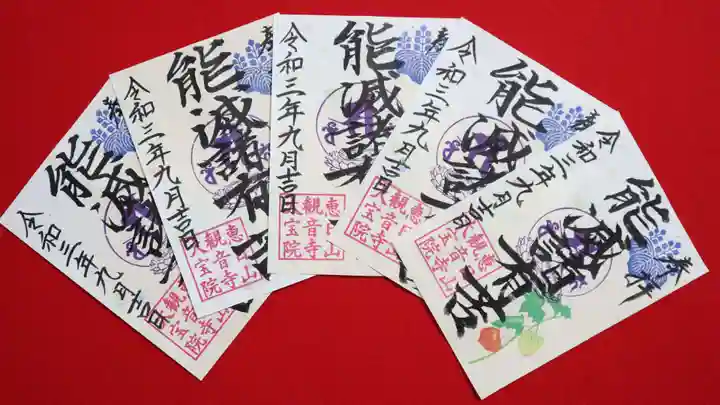 奉
能滅諸
令和三年九月吉日
山
観音寺
大宝院
奉
能滅諸有
令和三年九月吉日
恵日山
観音寺
大宝院
奉
能滅諸
令和三年九月吉日
恵日山
観音寺
大宝院
奉
能滅諸
令和三年九月吉日
恵日
観音
大宝
奉拝
能滅諸有苦
令和三年九月吉日
恵日山
観音寺
大宝院